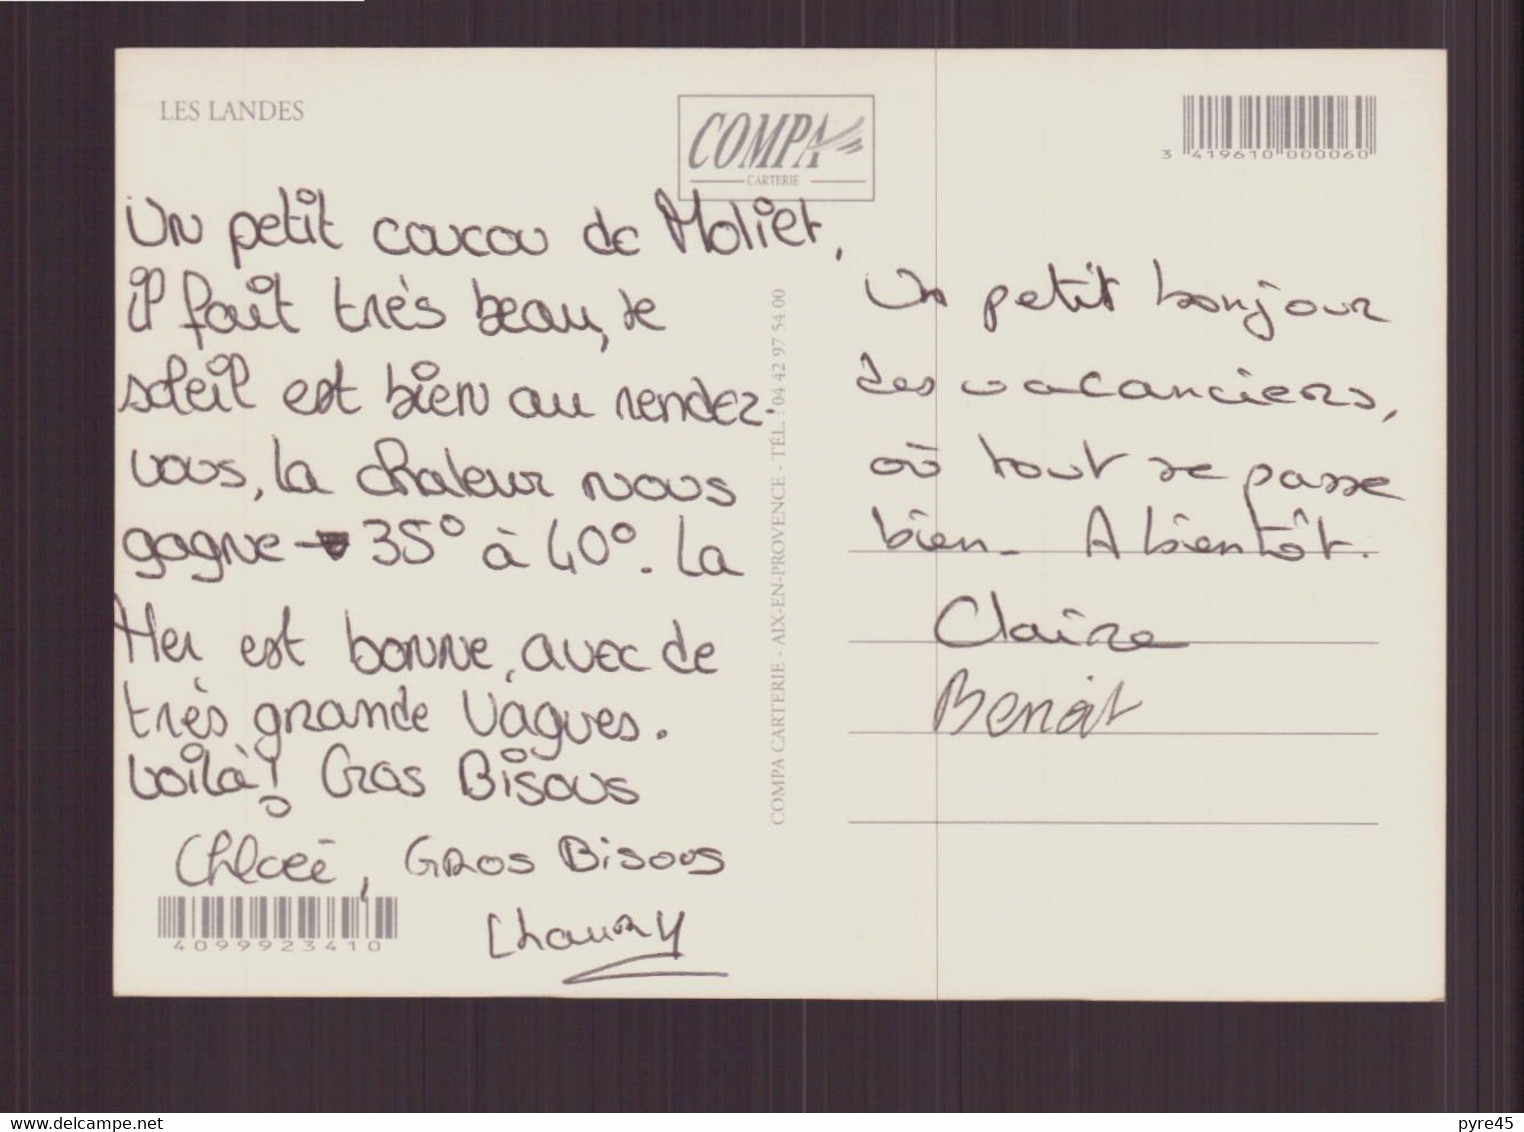 LES LANDES
COMPA
CARTERIE
3 419610 000060
Un petit coucou de Moliet,
il fait très beau, le
soleil est bien au rendez-
vous, la chaleur nous
gagne → 35° à 40°. La
Mer est bonne, avec de
très grande Vagues.
Voilà! Gros Bisous
Chloée, Gros Bisous
4099923410
COMPA CARTERIE - AIX-EN-PROVENCE - TÉL. : 04 42 97 54 00
Un petit bonjour
des vacanciers,
où tout se passe
bien - A bientôt.
Claire
Benoît
delcampe.net
pyre45